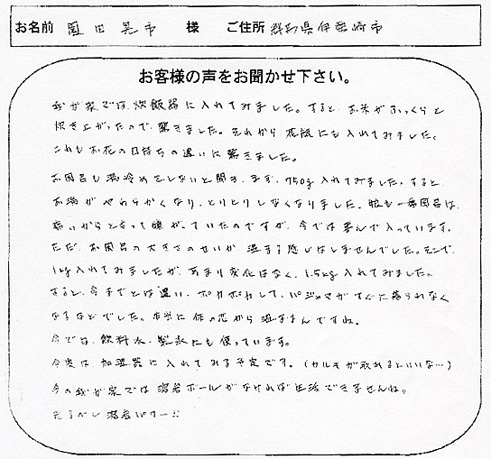 お名前 園田晃市 様 ご住所 群馬県伊勢崎市
お客様の声をお聞かせ下さい。
我が家では、炊飯器に入れてみました。すると、お米がふっくらと
炊き上がったので、驚きました。それから、花瓶にも入れてみました。
これもお花の日持ちの違いに驚きました。
お風呂も湯冷めをしないと聞き、まず、750g入れてみました。すると
お湯がやわらかくなり、とりとりしなくなりました。娘も一番風呂は、
痛いからと言って嫌がっていたのですが、今では喜んで入っています。
ただ、お風呂の大きさのせいか、温まる感じはしませんでした。そこで、
1kg入れてみましたが、あまり変化はなく、1.5kg入れてみました。
すると、今までとは違い、ポカポカして、パジャマがすぐに着られなく
なるほどでした。本当に体の芯から温まるんですね。
今では、飲料水、製氷にも使っています。
今度は、加湿器に入れてみる予定です。(カルキが取れるといいな…)
今の我が家では溶岩ボールがなければ生活できませんね。
溶岩パワー!!